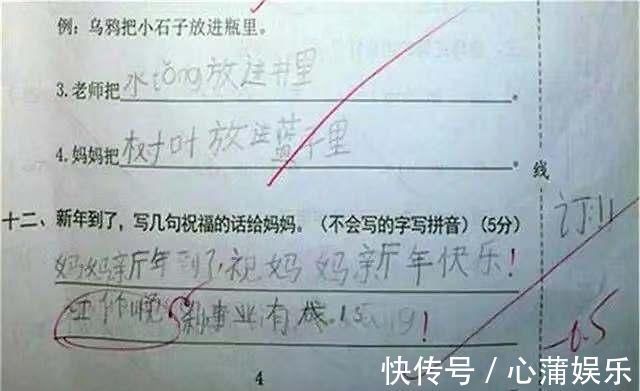 例：乌鸦把小石子放进瓶里。
3.老师把水tǒng放进井里。
4.妈妈把树叶放进蓝子里。
线
十二、新年到了，写几句祝福的话给妈妈。（不会写的字写拼音）（5分）
订
妈妈新年到了,祝妈妈新年快乐！
事业有
！
-0.5
4
快传号／心蒲娱乐